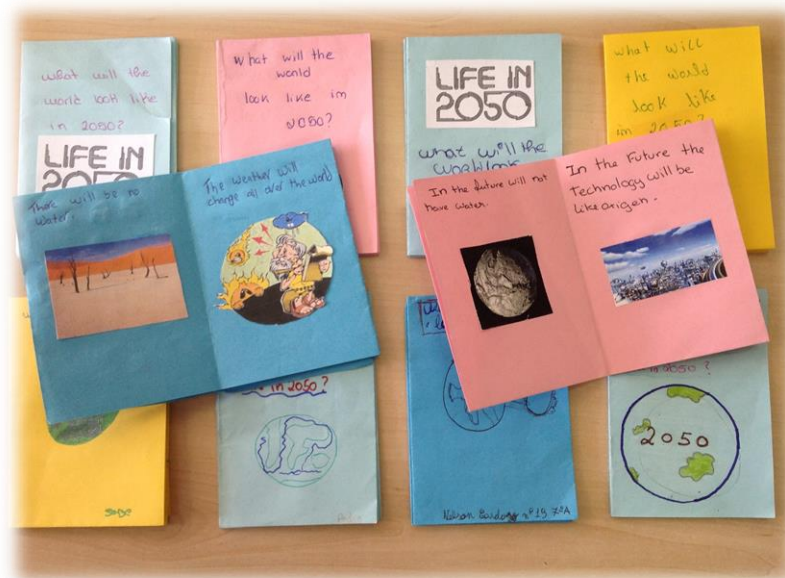 what will the
world look like
in 2050?
LIFE IN
2050
What will the
world
look like in
2050?
LIFE IN
2050
what will the
what will
the world
look like
in 2050?
There will be no
water.
The weather will
change all over the world
In the future will not
have water.
In the Future the
Technology will be
like origen.
in 2050?
2050
Nelson nº 19 7ºA